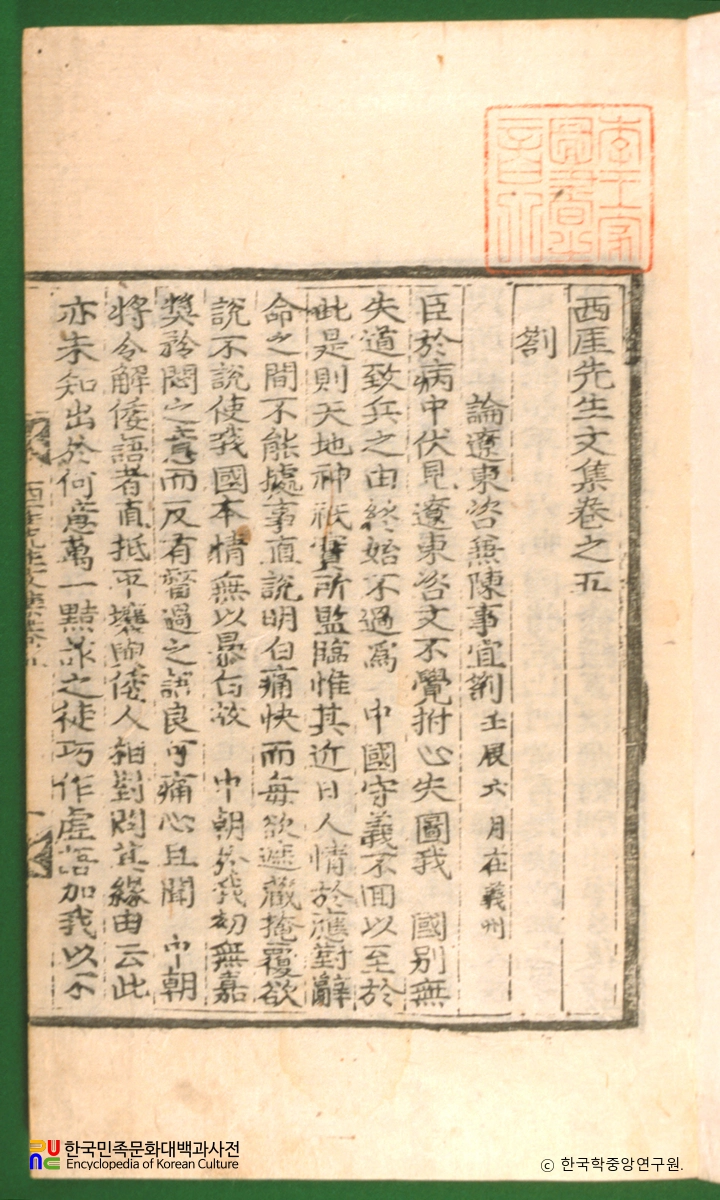 李王家
圖書之
章
西厓先生文集卷之五
劄
論遼東咨兼陳事宜劄 壬辰六月在義州
臣於病中伏見遼東咨文不覺拊心失圖我 國別無
失道致兵之由終始不過爲 中國守義不回以至於
此是則天地神祇實所監臨惟其近日人情於應對辭
命之間不能據事直說明白痛快而每欲遮藏掩覆欲
說不說使我國本情無以暴白故 中朝於我初無嘉
奬矜悶之意而反有督過之語良可痛心且聞 中朝
將令解倭語者直抵平壤與倭人相對問其緣由云此
亦未知出於何意萬一黠 之徒巧作虛語加我以不
西厓先生文集卷五
한국민족문화대백과사전
Encyclopedia of Korean Culture
ⓒ 한국학중앙연구원.